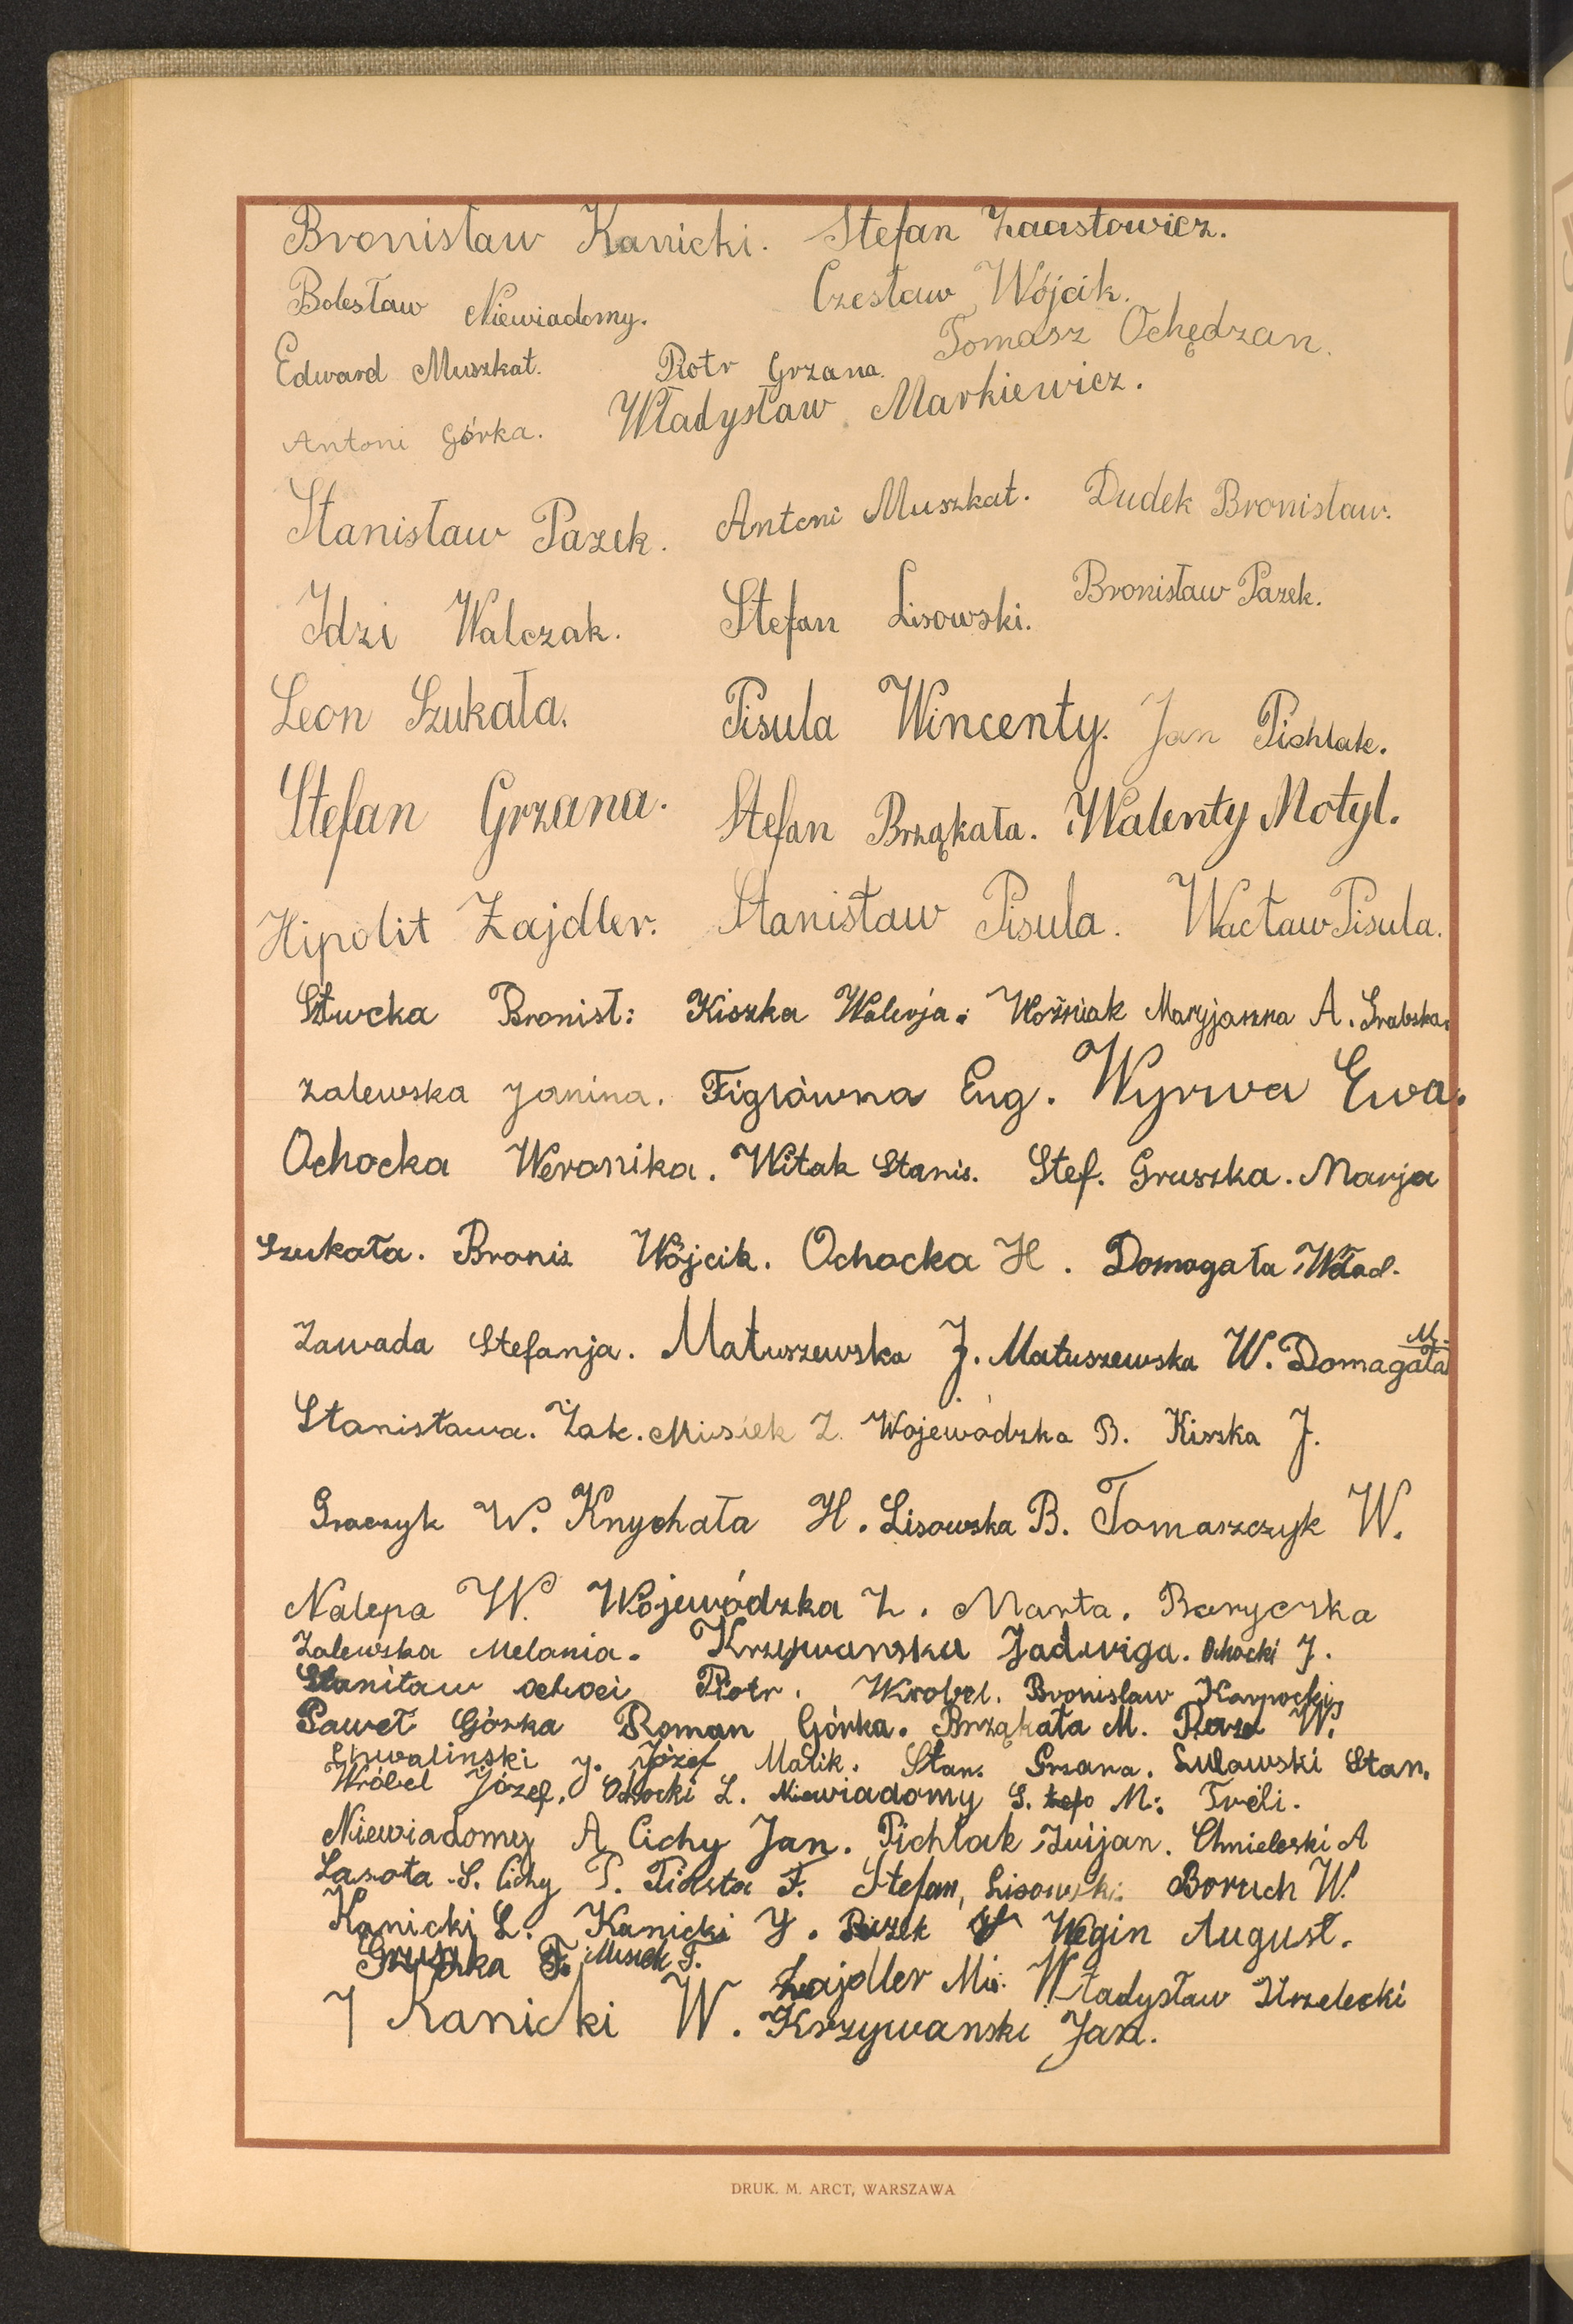 Bronisław Kanicki. Stefan
Bolesław Niewiadomy. Czesław Wójcik.
Edward Muszkat. Piotr Grzana. Tomasz Ochędzan.
Antoni Górka. Władysław Markiewicz.
Stanisław Pazek. Antoni Muszkat. Dudek Bronisław.
Idzi Walczak. Stefan Lisowski. Bronisław Pazek.
Leon Szukała. Pisula Wincenty. Jan Pichlak.
Stefan Grzana. Stefan Brząkała. Walenty Motyl.
Hipolit Zajdler. Stanisław Pisula. Wacław Pisula.
Bronisł: Kiszka Walerja. Woźniak Maryjanna A. Grabska.
Zalewska Janina. Figlówna Eug. Wyrwa Ewa.
Ochocka Weronika. Witak Stanis. Stef. Gruszka. Marja
Szukała. Bronis Wójcik. Ochocka H. Domagała Wład.
Zawada Stefanja. Matuszewska J. Matuszewska W. Domagała M.
Stanisława. Żak. Misiek Z. Wojewódzka B. Kiszka J.
Graczyk W. Knychała H. Lisowska B. Tomaszczyk W.
Nalepa W. Wojewódzka Z. Marta. Baryczka
Zalewska Melania. Krzywanska Jadwiga. Ochocki J.
Stanitaw ochoci Piotr. Wrobel. Bronislaw Karpocki
Paweł Górka Roman Górka. Brząkała M. W.
J. Józef Malik. Stan. Grzana. Stan.
Wróbel Józef. Ochocki L. Niewiadomy S. M:
Niewiadomy A Cichy Jan. Pichlak Chmieleski A
Lasota S. Cichy P. Piasta F. Stefan, Lisowski Boruch W.
Kanicki L. Kanicki Y. Wegin August.
Gruszka F. Misiek F.
Zajdler Mi: Władysław Strzelecki
J Kanicki W. Krzywanski Jan.
DRUK. M. ARCT, WARSZAWA